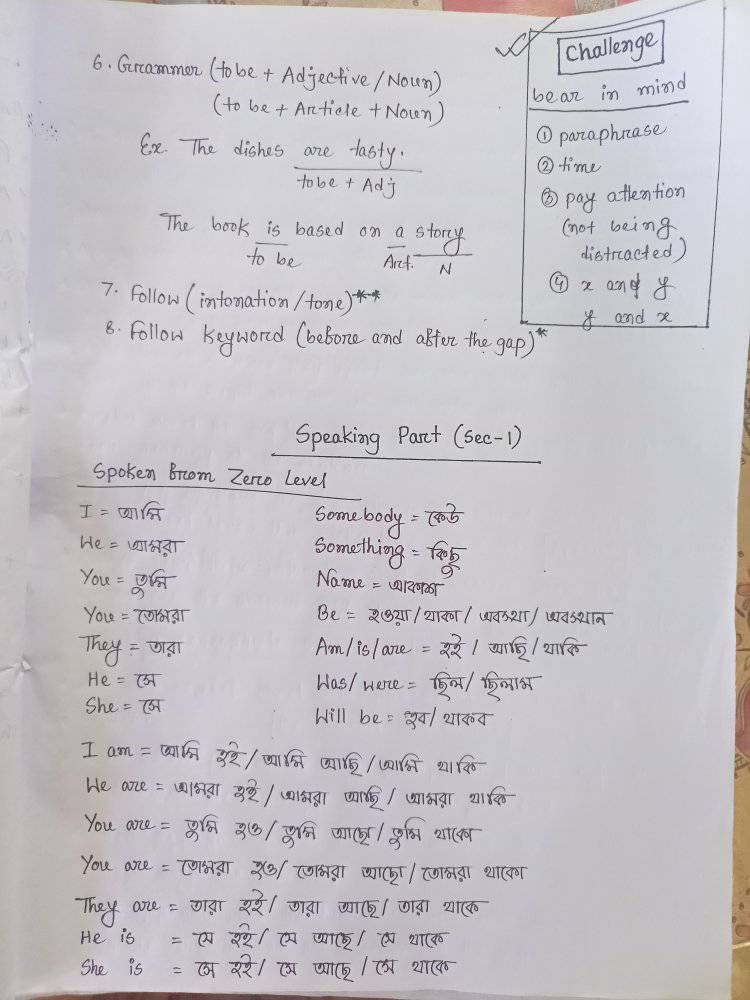 6. Grammer (to be + Adjective/Noun)
(to be + Article + Noun)
Ex. The dishes are tasty.
to be + Adj
The book is based on a story
to be Art. N
7. Follow (intonation/tone)**
8. Follow keyword (before and after the gap)*
Challenge
bear in mind
① paraphrase
② time
③ pay attention
(not being
distracted)
④ x and y
y and x
Speaking Part (Sec-1)
Spoken from Zero Level
I = আমি
We = আমরা
You = তুমি
You = তোমরা
They = তারা
He = সে
She = সে
Somebody = কেউ
Something = কিছু
Name = আকাশ
Be = হওয়া/থাকা/অবস্থা/অবস্থান
Am/is/are = হই/আছি/থাকি
Was/were = ছিল/ছিলাম
Will be = হব/থাকব
I am = আমি হই/আমি আছি/আমি থাকি
We are = আমরা হই/আমরা আছি/আমরা থাকি
You are = তুমি হও/তুমি আছো/তুমি থাকো
You are = তোমরা হও/তোমরা আছো/তোমরা থাকো
They are = তারা হই/তারা আছে/তারা থাকে
He is = সে হই/সে আছে/সে থাকে
She is = সে হই/সে আছে/সে থাকে